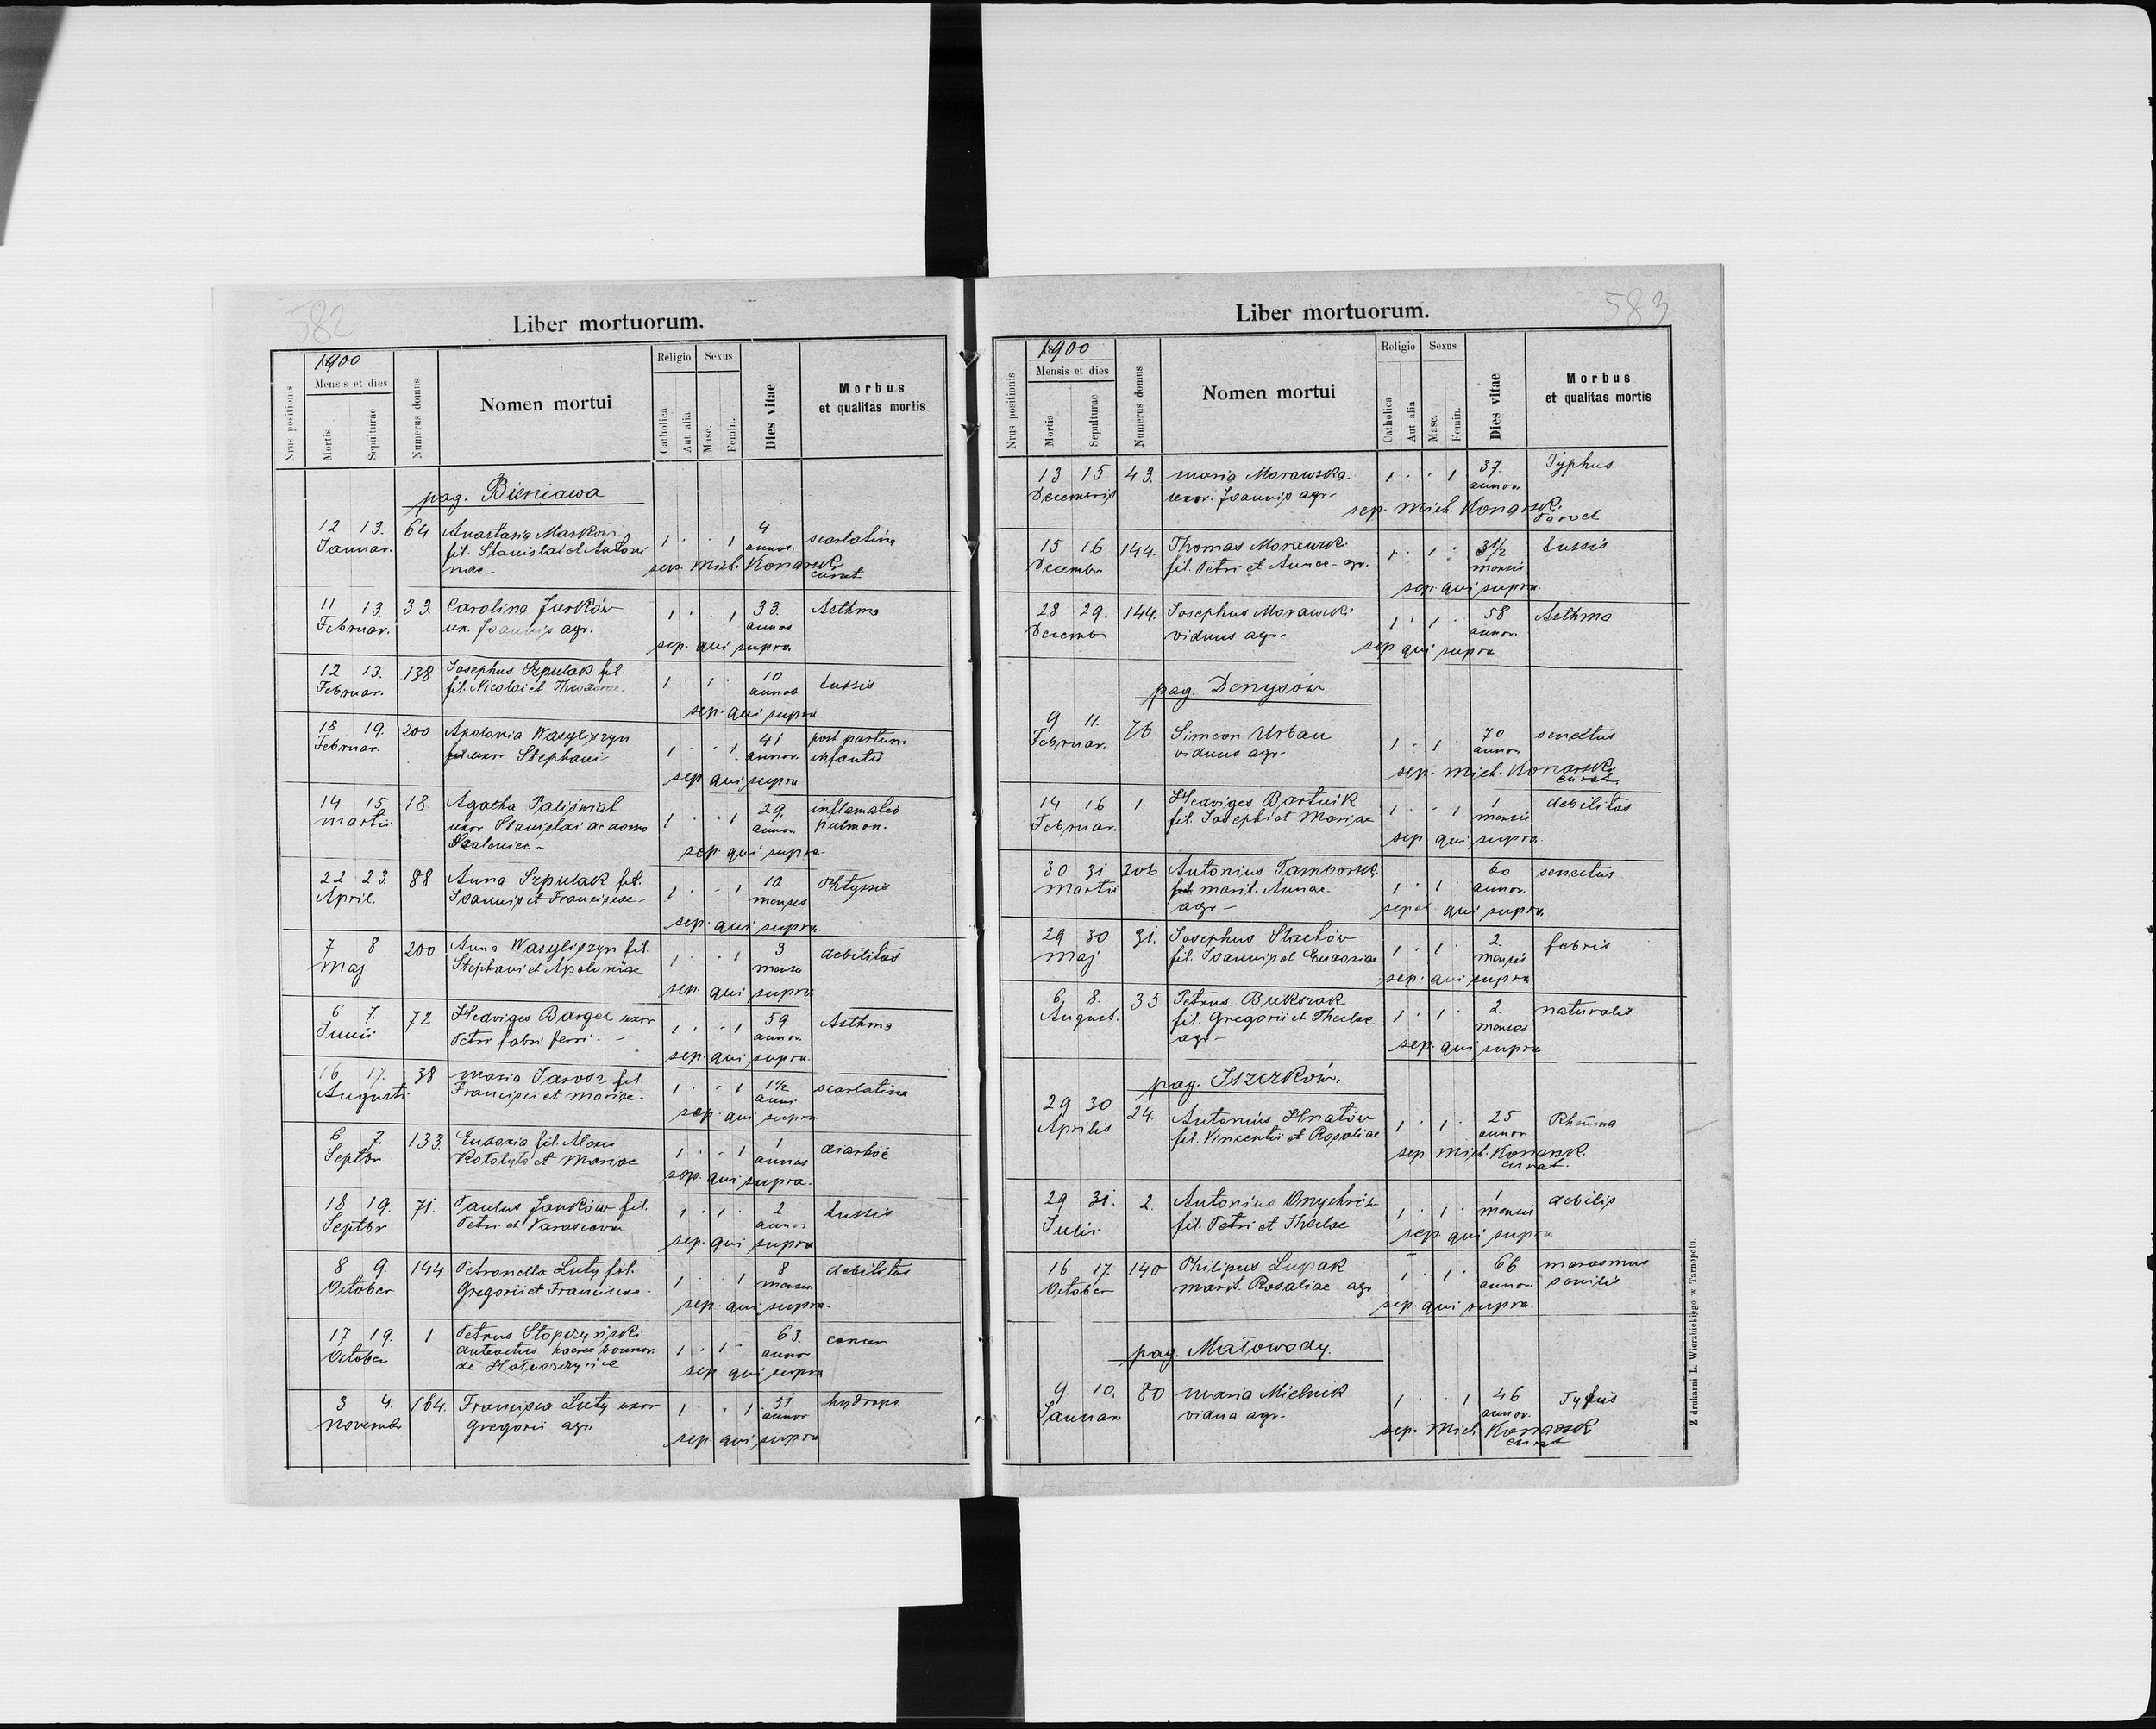 582
Liber mortuorum.
1900
Mensis et dies
Nrus positionis
Mortis
Sepulturae
Numerus domus
Nomen mortui
Religio
Sexus
Catholica
Aut alia
Masc.
Femin.
Dies vitae
Morbus
et qualitas mortis
pag. Bieniawa
12 13. 64 Anastasia Markow 1 . . 1 4 scarlatina
Januar. fil. Stanislai et Antoni annos.
nae - sep. Mich. Konarsk.
curat
11 13 33. Carolina Jurków 1 . . 1 33. Asthma
Februar. ux. Joannis agr. annos
sep. qui supra
12 13. 138 Josephus Szpulak fil. 1 . 1 . 10 tussis
Februar. fil. Nicolai et Theodorae annos
sep. qui supra
18 19. 200 Apolonia Wasyliszyn 1 . . 1 41 post partum
Februar. uxor Stephani annor. infantis
sep. qui supra
14 15 18 Agatha Paliświat 1 . . 1 29. inflamatio
Martii uxor Stanislai de domo annor. pulmon.
sep. qui supra
22 23. 88 Anna Szpulak fil. 1 . . 1 10 Phtyssis
April. Joannis et Franciscae - menses
sep. qui supra
7 8 200 Anna Wasyliszyn fil. 1 . . 1 3 debilitas
Maj Stephani et Apoloniae
sep. qui supra
6 7. 72 Hedviges Bargel uxor 1 . . 1 59. Asthma
Junii Petri fabri ferri - annor.
sep. qui supra
16 17. 38 Maria Jarosz fil. 1 . . 1 1 1/2 scarlatina
Augusti Francisci et Mariae - anni
sep. qui supra
6 7. 133. Eudoxia fil. Alexii 1 . . 1 1 diarhöe
Septbr et Mariae annus
sep. qui supra.
18 19. 71. Paulus Janków fil. 1 . 1 . 2 tussis
Septbr Petri et annos
sep. qui supra
8 9. 144. Petronella Luty fil. 1 . . 1 8 debilitas
October Gregorii et Franciscae - menses
sep. qui supra.
17 19. 1 Petrus Stopczyński 1 . 1 . 63.
October haeres bonnor. annor
de
sep. qui supra
3 4. 164. Francisca Luty uxor 1 . . 1 51 hydrops.
Novembr Gregorii agr. annor
sep. qui supra
583
Liber mortuorum.
1900
Mensis et dies
Nrus positionis
Mortis
Sepulturae
Numerus domus
Nomen mortui
Religio
Sexus
Catholica
Aut alia
Masc.
Femin.
Dies vitae
Morbus
et qualitas mortis
13 15 43. Maria Morawska 1 . . 1 37. Typhus
Decembris uxor. Joannis agr - annor.
sep. Mich. Konarsk.
15 16 144. Thomas Morawsk. 1 . 1 . 3 1/2 tussis
Decembr. fil. Petri et Annae - agr.
sep. qui supra
28 29. 144. Josephus Morawski 1 . 1 . 58 Asthma
Decembr viduus agr - annor.
sep. qui supra
pag. Denysów
9 11. 76 Simeon Urban 1 . 1 . 70 senectus
Februar. viduus agr - annor.
sep. Mich. Konarsk.
curat.
14 16 1. Hedviges Bartnik 1 . . 1 1 debilitas
Februar. fil. Josephi et Mariae mensis
sep. qui supra.
30 31 206 Antonius Tamborsk. 1 . 1 . 60 senectus
Martii marit. Annae annor.
agr -
qui supra
29 30 31. Josephus Stachów 1 . 1 . 2. febris
Maj fil. Joannis et Eudoxiae menses
sep. qui supra
6 8. 35 Petrus Bukszak 1 . 1 . 2. naturalis
August. fil. Gregorii et Theclae menses
agr -
sep. qui supra
pag. Iszczków.
29 30 24. Antonius Hnatów 1 . 1 . 25 Rheuma
Aprilis fil. Vincentii et Rosaliae annor
sep. Mich. Konarsk.
curat.
29 31. 2. Antonius Onychrów 1 . 1 . 1 debilis
Julii fil. Petri et Theclae mensis
sep. qui supra
16 17. 140 Philipus Lupak 1 . 1 . 66 marasmus
October marit. Rosaliae agr annor. senilis
sep. qui supra.
pag. Małowody.
9. 10. 80 Maria Mielnik 1 . 1 46 Tyfus
Januar vidua agr - annor.
sep. Mich. Konarsk
curat
Z drukarni L. Wierzbickiego w Tarnopolu.